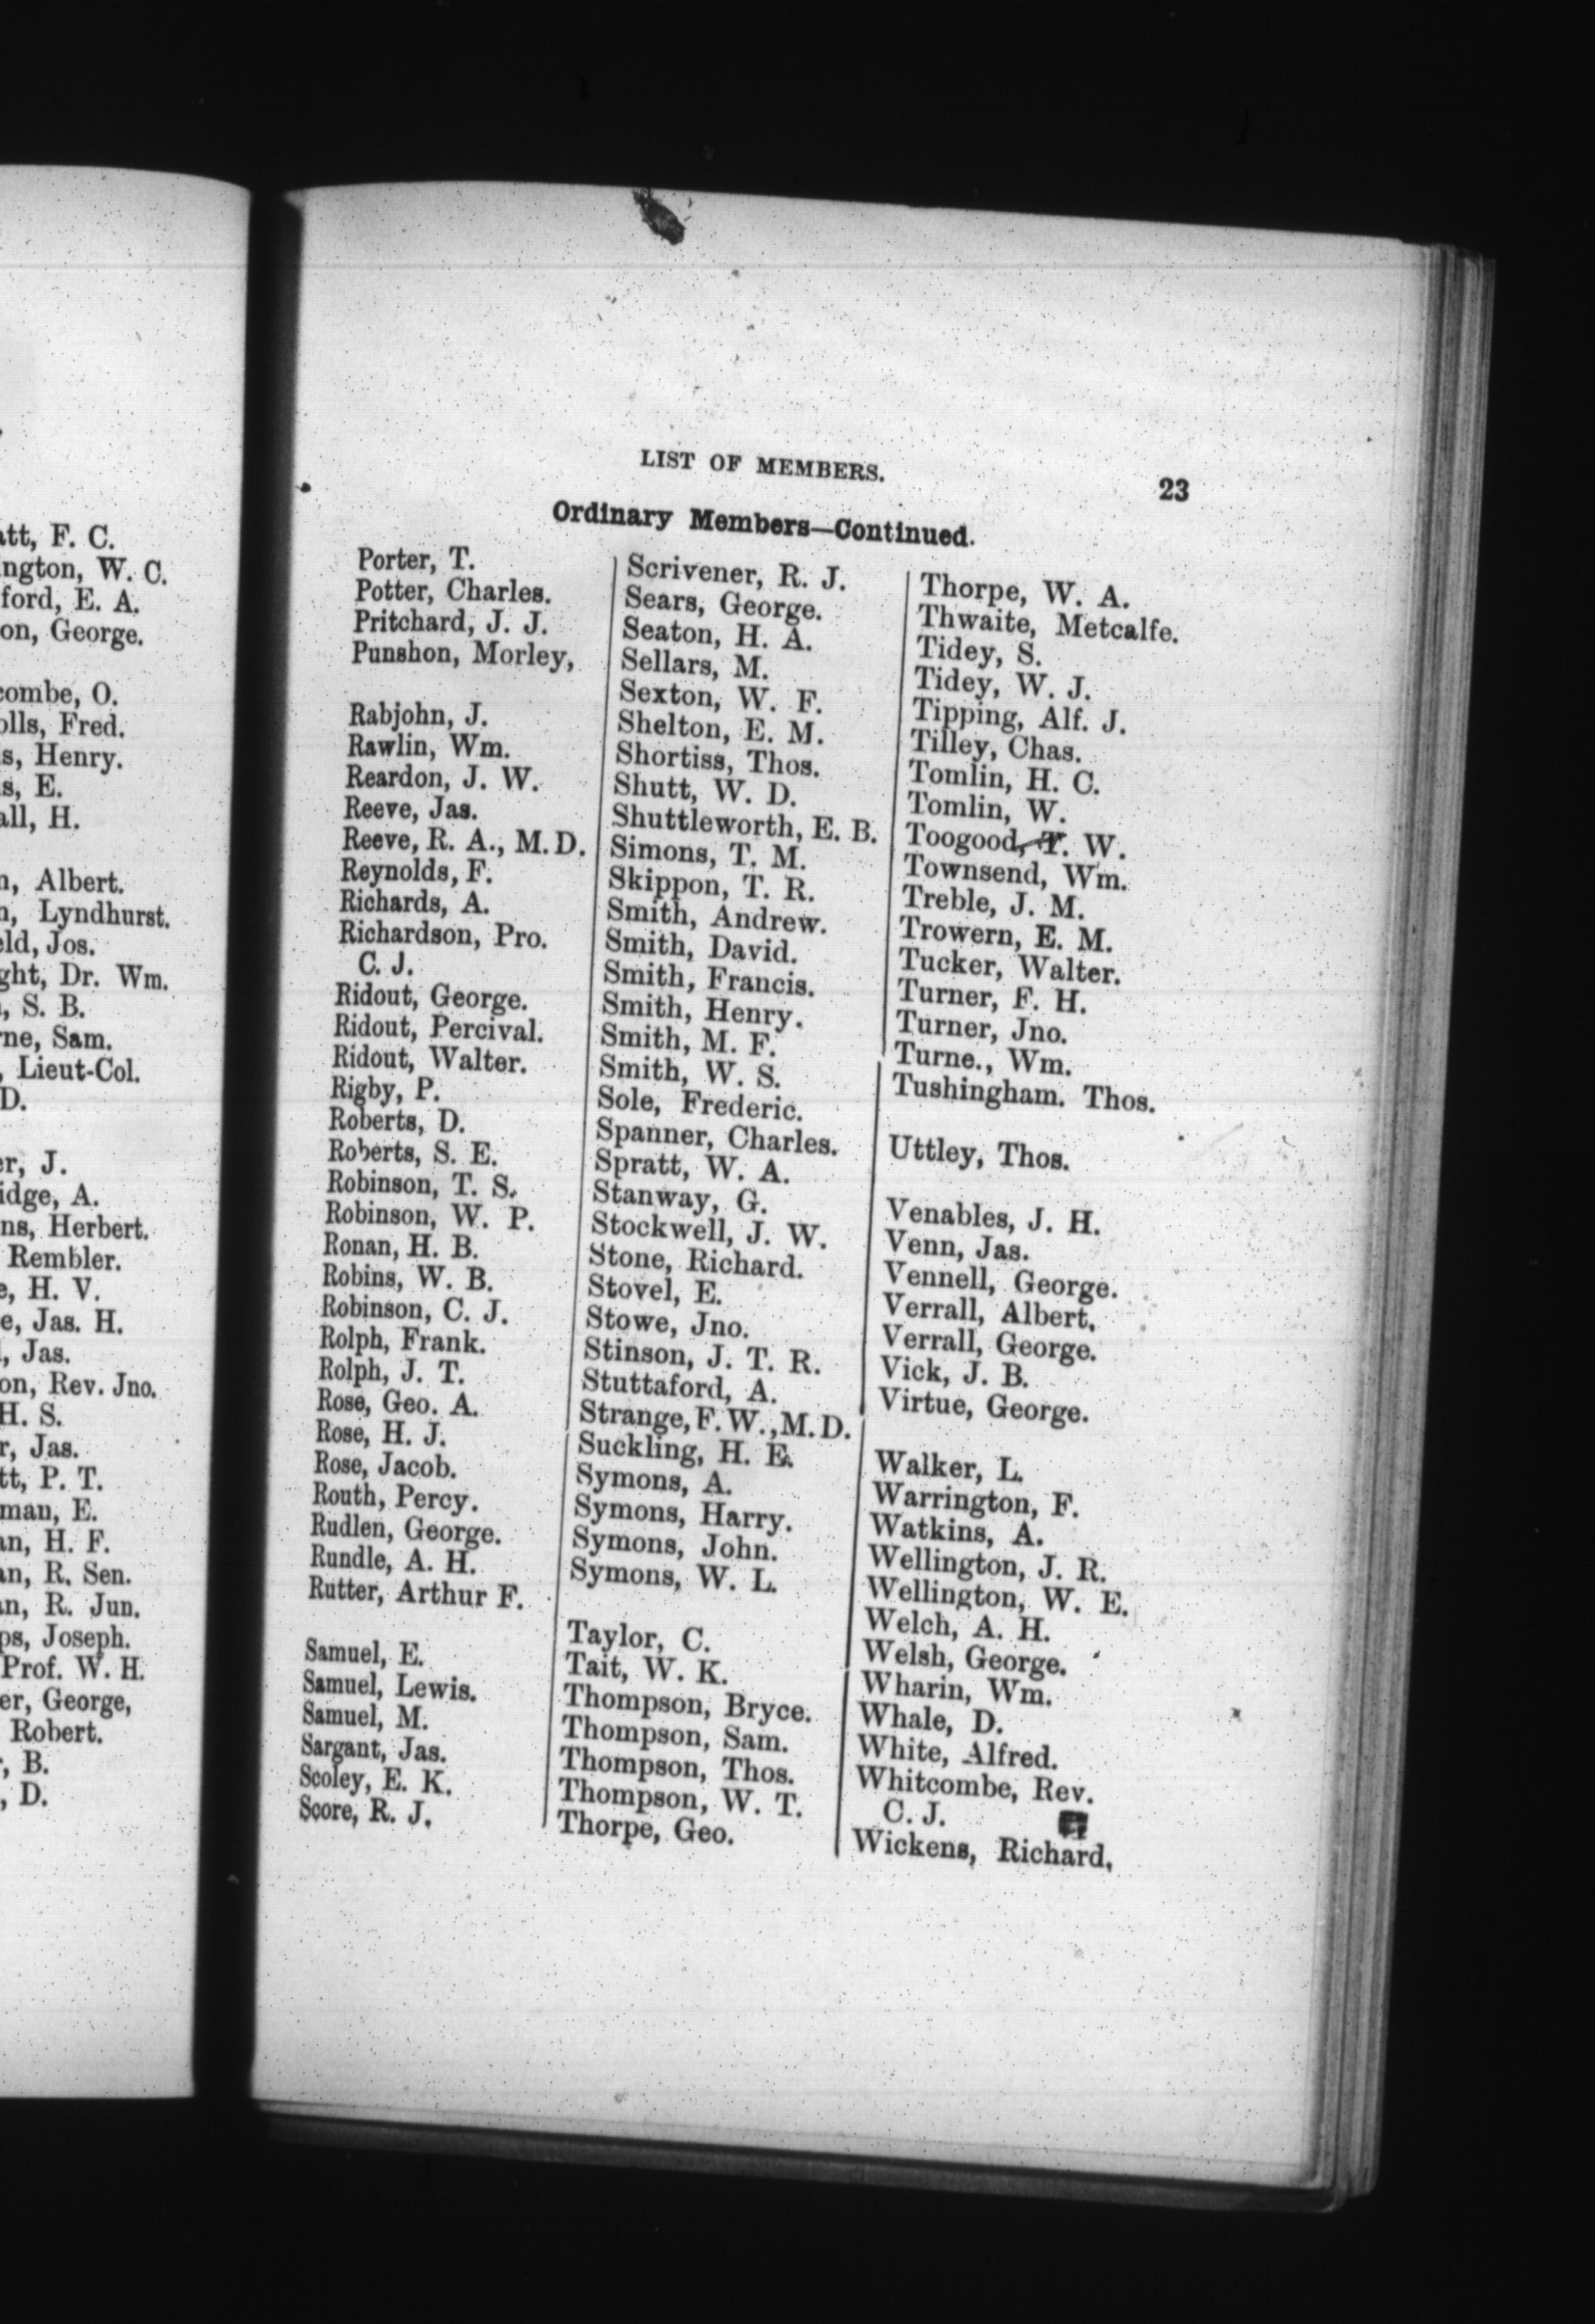 F. C.
W. C.
E. A.
George.
O.
Fred.
Henry.
E.
H.
Albert.
Lyndhurst.
Jos.
Dr. Wm.
S. B.
Sam.
Lieut-Col.
D.
J.
A.
Herbert.
Rembler.
H. V.
Jas. H.
Jas.
Rev. Jno.
H. S.
Jas.
P. T.
E.
H. F.
R. Sen.
R. Jun.
Joseph.
Prof. W. H.
George,
Robert.
B.
D.
LIST OF MEMBERS.
23
Ordinary Members—Continued.
Porter, T.
Potter, Charles.
Pritchard, J. J.
Punshon, Morley,
Rabjohn, J.
Rawlin, Wm.
Reardon, J. W.
Reeve, Jas.
Reeve, R. A., M.D.
Reynolds, F.
Richards, A.
Richardson, Pro.
C. J.
Ridout, George.
Ridout, Percival.
Ridout, Walter.
Rigby, P.
Roberts, D.
Roberts, S. E.
Robinson, T. S.
Robinson, W. P.
Ronan, H. B.
Robins, W. B.
Robinson, C. J.
Rolph, Frank.
Rolph, J. T.
Rose, Geo. A.
Rose, H. J.
Rose, Jacob.
Routh, Percy.
Rudlen, George.
Rundle, A. H.
Rutter, Arthur F.
Samuel, E.
Samuel, Lewis.
Samuel, M.
Sargant, Jas.
Scoley, E. K.
Score, R. J.
Scrivener, R. J.
Sears, George.
Seaton, H. A.
Sellars, M.
Sexton, W. F.
Shelton, E. M.
Shortiss, Thos.
Shutt, W. D.
Shuttleworth, E. B.
Simons, T. M.
Skippon, T. R.
Smith, Andrew.
Smith, David.
Smith, Francis.
Smith, Henry.
Smith, M. F.
Smith, W. S.
Sole, Frederic.
Spanner, Charles.
Spratt, W. A.
Stanway, G.
Stockwell, J. W.
Stone, Richard.
Stovel, E.
Stowe, Jno.
Stinson, J. T. R.
Stuttaford, A.
Strange, F. W., M.D.
Suckling, H. E.
Symons, A.
Symons, Harry.
Symons, John.
Symons, W. L.
Taylor, C.
Tait, W. K.
Thompson, Bryce.
Thompson, Sam.
Thompson, Thos.
Thompson, W. T.
Thorpe, Geo.
Thorpe, W. A.
Thwaite, Metcalfe.
Tidey, S.
Tidey, W. J.
Tipping, Alf. J.
Tilley, Chas.
Tomlin, H. C.
Tomlin, W.
Toogood, T. W.
Townsend, Wm.
Treble, J. M.
Trowern, E. M.
Tucker, Walter.
Turner, F. H.
Turner, Jno.
Turne., Wm.
Tushingham. Thos.
Uttley, Thos.
Venables, J. H.
Venn, Jas.
Vennell, George.
Verrall, Albert.
Verrall, George.
Vick, J. B.
Virtue, George.
Walker, L.
Warrington, F.
Watkins, A.
Wellington, J. R.
Wellington, W. E.
Welch, A. H.
Welsh, George.
Wharin, Wm.
Whale, D.
White, Alfred.
Whitcombe, Rev.
C. J.
Wickens, Richard,